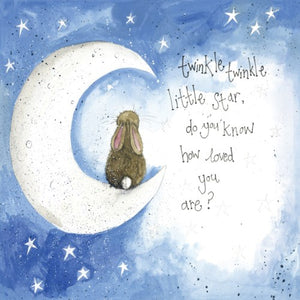 twinkle twinkle
little star,
do you know
how loved
you
are?